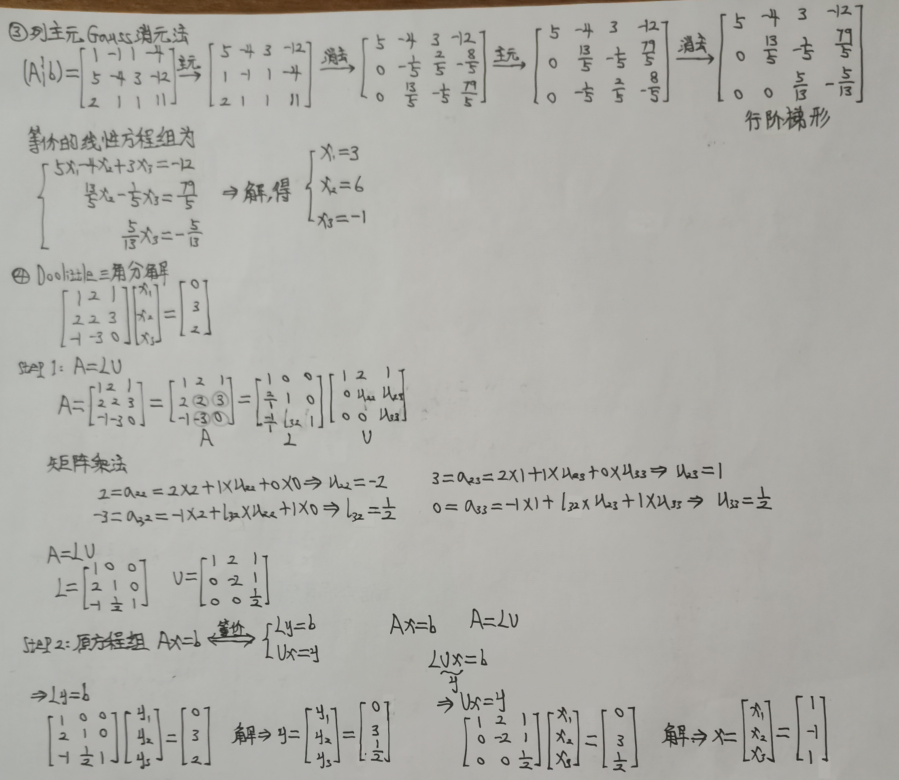 ③列主元Gauss消元法
(A¦b)=[1 -1 1 -4; 5 -4 3 -12; 2 1 1 11] 主元→ [5 -4 3 -12; 1 -1 1 -4; 2 1 1 11] 消去→ [5 -4 3 -12; 0 -1/5 2/5 -8/5; 0 13/5 -1/5 79/5] 主元→ [5 -4 3 -12; 0 13/5 -1/5 79/5; 0 -1/5 2/5 -8/5] 消去→ [5 -4 3 -12; 0 13/5 -1/5 79/5; 0 0 5/13 -5/13]
行阶梯形
等价的线性方程组为
{5x₁-4x₂+3x₃=-12
13/5x₂-1/5x₃=79/5 ⇒解,得 {x₁=3 x₂=6 x₃=-1
5/13x₃=-5/13
④ Doolittle三角分解
[1 2 1; 2 2 3; -1 -3 0][x₁; x₂; x₃]=[0; 3; 2]
Step 1: A=LU
A=[1 2 1; 2 2 3; -1 -3 0]=[1 2 1; 2 ② ③; -1 -3 0]=[1 0 0; 2/1 1 0; -1/1 l₃₂ 1][1 2 1; 0 u₂₂ u₂₃; 0 0 u₃₃]
A L U
矩阵乘法
2=a₂₂=2×2+1×u₂₂+0×0⇒u₂₂=-2 3=a₂₃=2×1+1×u₂₃+0×u₃₃⇒u₂₃=1
-3=a₃₂=-1×2+l₃₂×u₂₂+1×0⇒l₃₂=1/2 0=a₃₃=-1×1+l₃₂×u₂₃+1×u₃₃⇒u₃₃=1/2
A=LU
L=[1 0 0; 2 1 0; -1 1/2 1] U=[1 2 1; 0 -2 1; 0 0 1/2]
Step 2: 原方程组 Ax=b 等价⟺ {Ly=b Ux=y Ax=b A=LU
LUx=b
y
⇒Ly=b ⇒Ux=y
[1 0 0; 2 1 0; -1 1/2 1][y₁; y₂; y₃]=[0; 3; 2] 解⇒y=[y₁; y₂; y₃]=[0; 3; 1/2] [1 2 1; 0 -2 1; 0 0 1/2][x₁; x₂; x₃]=[0; 3; 1/2] 解⇒x=[x₁; x₂; x₃]=[1; -1; 1]